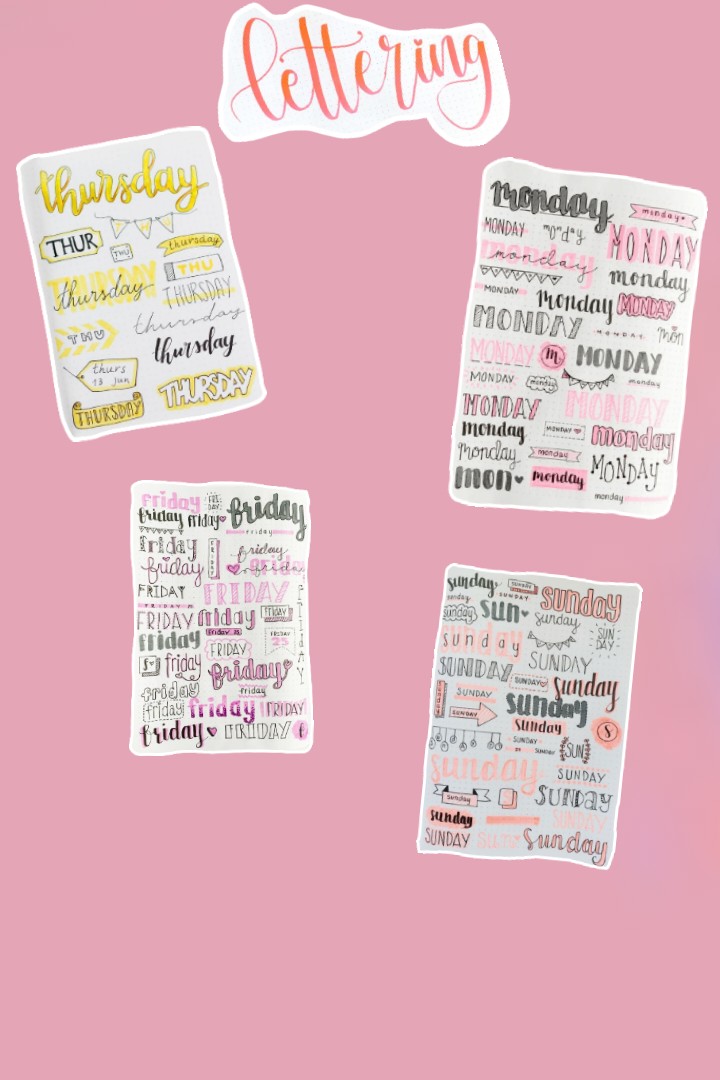 lettering
thursday
T H U
THUR
THU
thursday
THURSDAY
thursday
THU
THURSDAY
thursday
THU
thursday
thurs
13 Jun
THURSDAY
THURSDAY
monday
monday
MONDAY
monday
MONDAY
monday
monday
MONDAY
monday
MONDAY
MONDAY
MONDAY
mon
MONDAY
M
MONDAY
MONDAY
monday
monday
MONDAY
MONDAY
monday
MONDAY
monday
monday
monday
MONDAY
mon
monday
monday
friday
FRI
DAY
friday
friday
friday
friday
friday
FRIDAY
friday
friday
friday
FRIDAY
FRIDAY
FRIDAY
FRIDAY
friday
FRIDAY
friday
FRIDAY 23
FRIDAY
FRIDAY
23
FRIDAY
friday
friday
friday
friday
friday
friday
FRIDAY
friday
FRIDAY
f
sunday
SUNDAY
SUNDAY
sunday
sunday
sunday
sun
sunday
sunday
SUN
DAY
SUNDAY
SUNDAY
SUNDAY
sunday
SUNDAY
sunday
SUNDAY
sunday
S
SUNDAY
SUNDAY
SUN
sunday
SUNDAY
sunday
S
SUNDAY
sunday
SUNDAY
SUNDAY
sun
Sunday